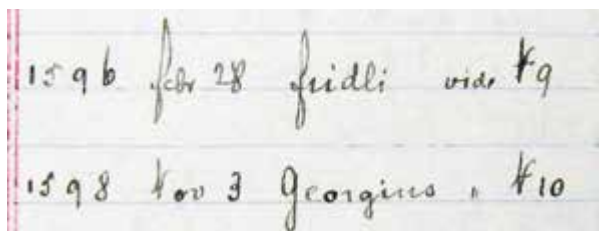 1596 febr 28 fridli vide N9
1598 Nov 3 Georgius " N10